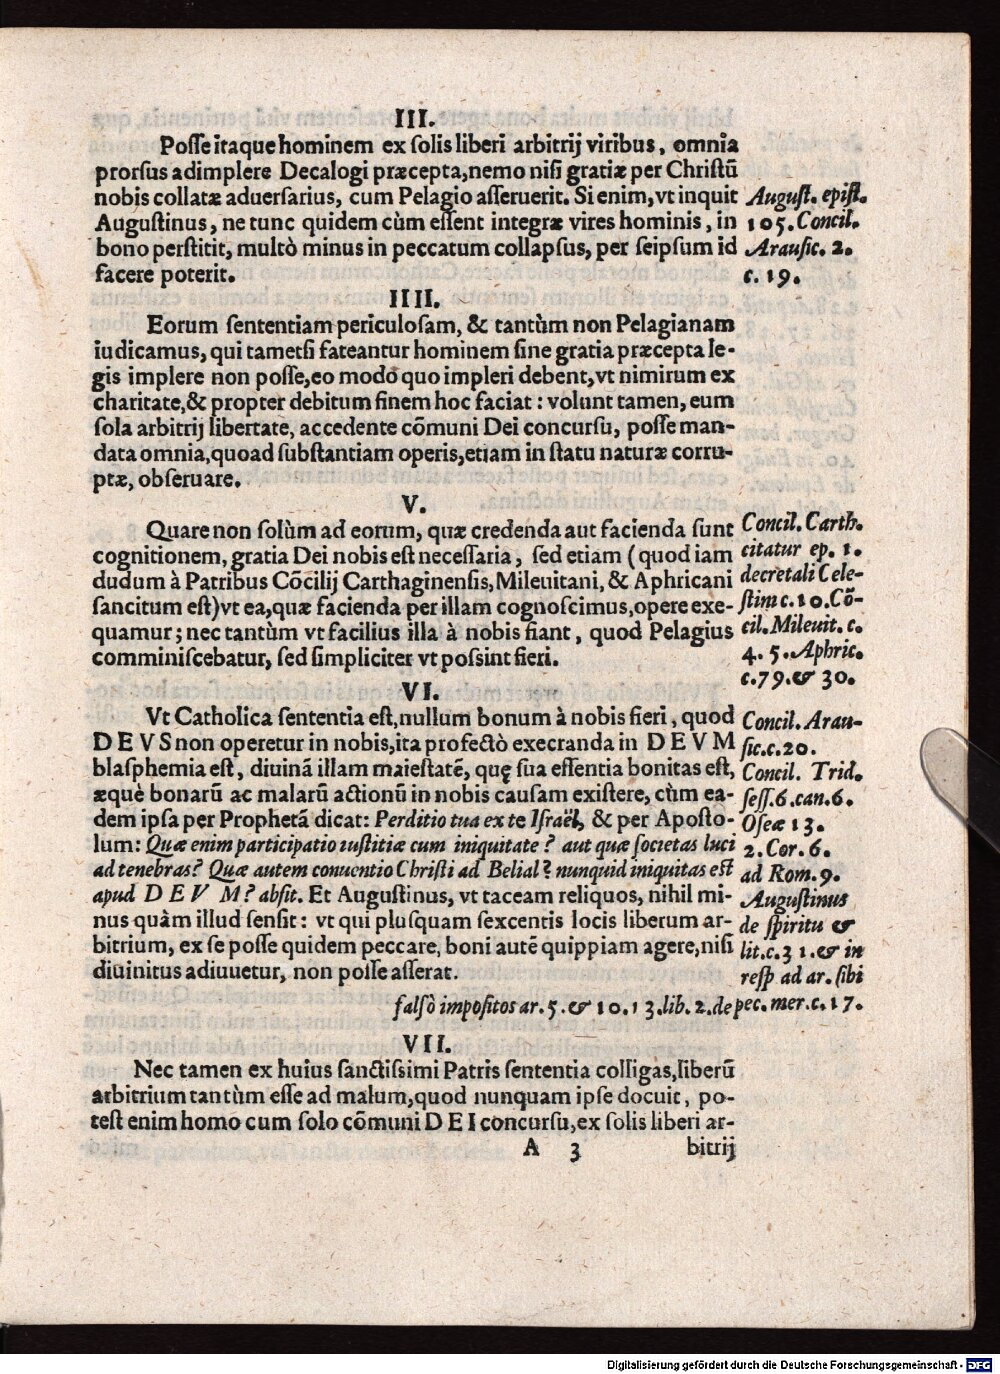 III.
Posse itaque hominem ex solis liberi arbitrij viribus, omnia
prorsus adimplere Decalogi præcepta, nemo nisi gratiæ per Christũ
nobis collatæ aduersarius, cum Pelagio asseruerit. Si enim, vt inquit
Augustinus, ne tunc quidem cùm essent integræ vires hominis, in
bono perstitit, multò minus in peccatum collapsus, per seipsum id
facere poterit.
August. epist.
105. Concil.
Arausic. 2.
c. 19.
IIII.
Eorum sententiam periculosam, & tantùm non Pelagianam
iudicamus, qui tametsi fateantur hominem sine gratia præcepta le-
gis implere non posse, eo modo quo impleri debent, vt nimirum ex
charitate, & propter debitum finem hoc faciat: volunt tamen, eum
sola arbitrij libertate, accedente cõmuni Dei concursu, posse man-
data omnia, quoad substantiam operis, etiam in statu naturæ corru-
ptæ, obseruare.
V.
Quare non solùm ad eorum, quæ credenda aut facienda sunt
cognitionem, gratia Dei nobis est necessaria, sed etiam (quod iam
dudum à Patribus Cõcilij Carthaginensis, Mileuitani, & Aphricani
sancitum est) vt ea, quæ facienda per illam cognoscimus, opere exe-
quamur; nec tantùm vt facilius illa à nobis fiant, quod Pelagius
comminiscebatur, sed simpliciter vt possint fieri.
Concil. Carth.
citatur ep. 1.
decretali Cele-
stini c. 10. Cõ-
cil. Mileuit. c.
4. 5. Aphric.
c. 79. & 30.
VI.
Vt Catholica sententia est, nullum bonum à nobis fieri, quod
DEVS non operetur in nobis, ita profectò execranda in DEVM
blasphemia est, diuinã illam maiestatẽ, quę sua essentia bonitas est,
æquè bonarũ ac malarũ actionũ in nobis causam existere, cùm ea-
dem ipsa per Prophetã dicat: Perditio tua ex te Israël, & per Aposto-
lum: Quæ enim participatio iustitiæ cum iniquitate? aut quæ societas luci
ad tenebras? Quæ autem conuentio Christi ad Belial? nunquid iniquitas est
apud DEVM? absit. Et Augustinus, vt taceam reliquos, nihil mi-
nus quàm illud sensit: vt qui plusquam sexcentis locis liberum ar-
bitrium, ex se posse quidem peccare, boni autẽ quippiam agere, nisi
diuinitus adiuuetur, non posse asserat.
Concil. Arau-
sic. c. 20.
Concil. Trid.
sess. 6. can. 6.
Oseæ 13.
2. Cor. 6.
ad Rom. 9.
Augustinus
de spiritu &
lit. c. 31. & in
resp ad ar. sibi
falsò impositos ar. 5. & 10. 13. lib. 2. de pec. mer. c. 17.
VII.
Nec tamen ex huius sanctissimi Patris sententia colligas, liberũ
arbitrium tantùm esse ad malum, quod nunquam ipse docuit, po-
test enim homo cum solo cõmuni DEI concursu, ex solis liberi ar-
A 3 bitrij
Digitalisierung gefördert durch die Deutsche Forschungsgemeinschaft - DFG